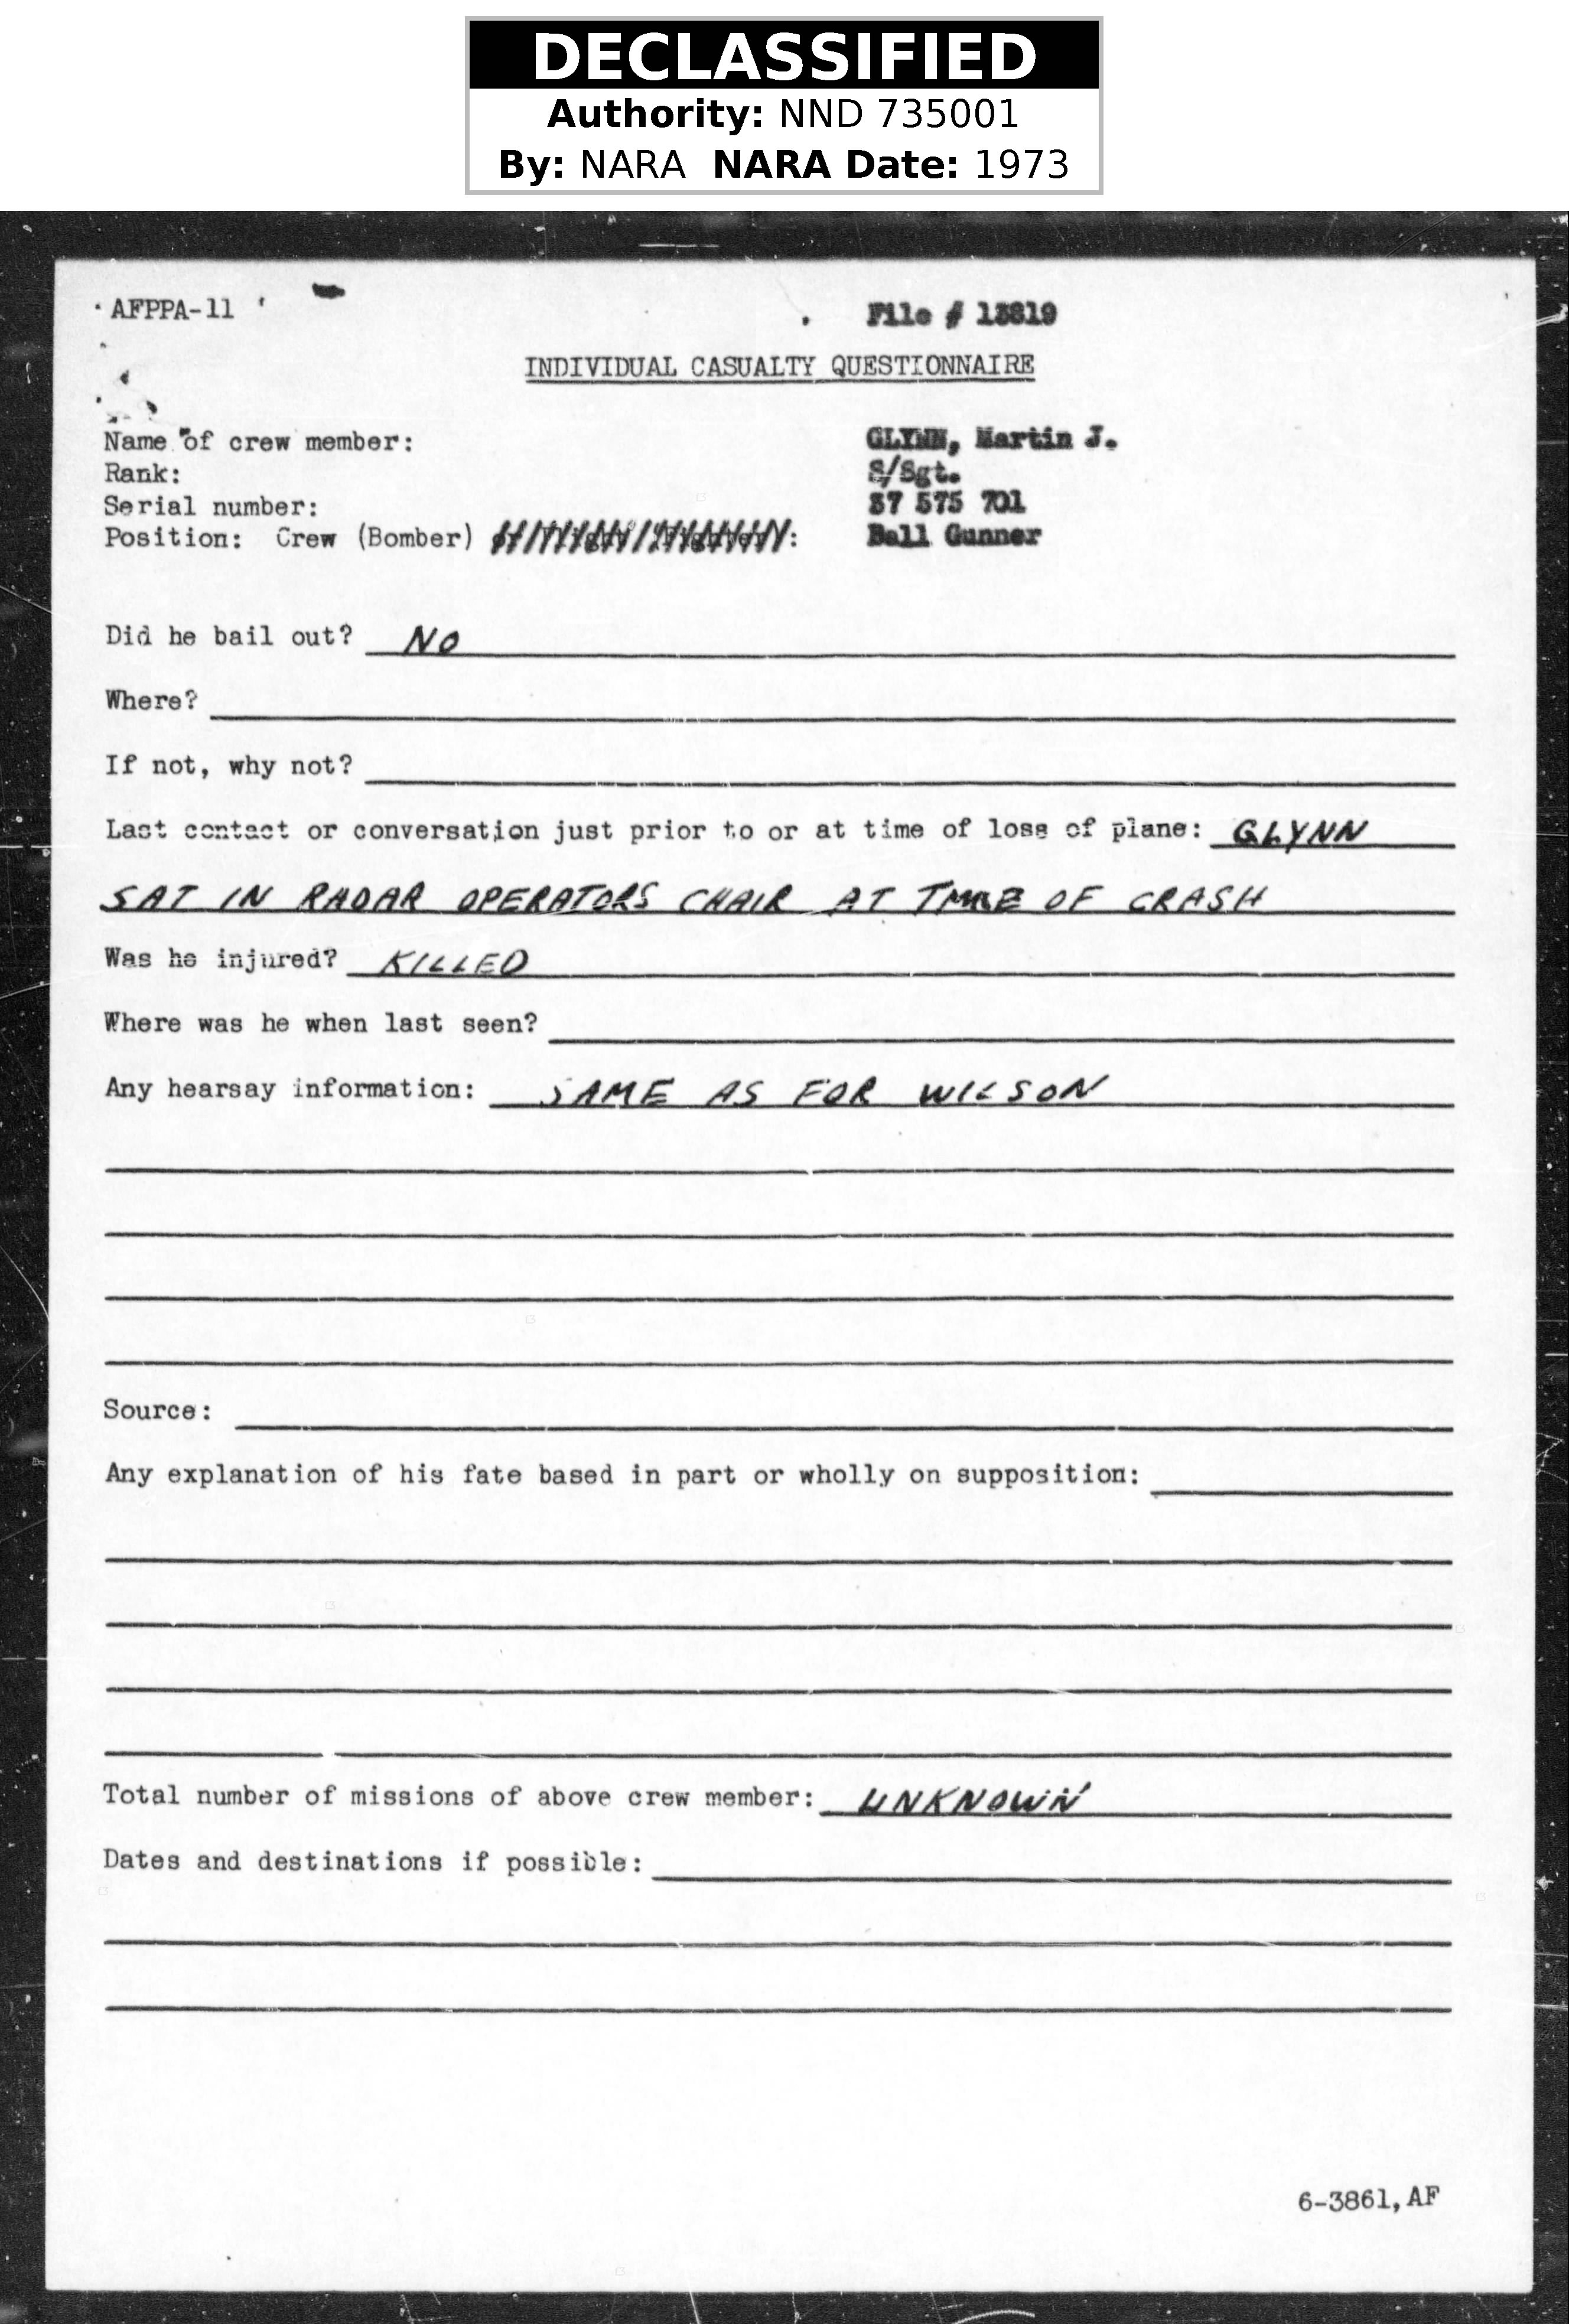 DECLASSIFIED
Authority: NND 735001
By: NARA NARA Date: 1973
AFPPA-11
File # 13819
INDIVIDUAL CASUALTY QUESTIONNAIRE
Name of crew member: GLYNN, Martin J.
Rank: S/Sgt.
Serial number: 37 575 701
Position: Crew (Bomber) : Ball Gunner
Did he bail out? NO
Where?
If not, why not?
Last contact or conversation just prior to or at time of loss of plane: GLYNN
SAT IN RADAR OPERATORS CHAIR AT TIME OF CRASH
Was he injured? KILLED
Where was he when last seen?
Any hearsay information: SAME AS FOR WILSON
Source:
Any explanation of his fate based in part or wholly on supposition:
Total number of missions of above crew member: UNKNOWN
Dates and destinations if possible:
6-3861, AF